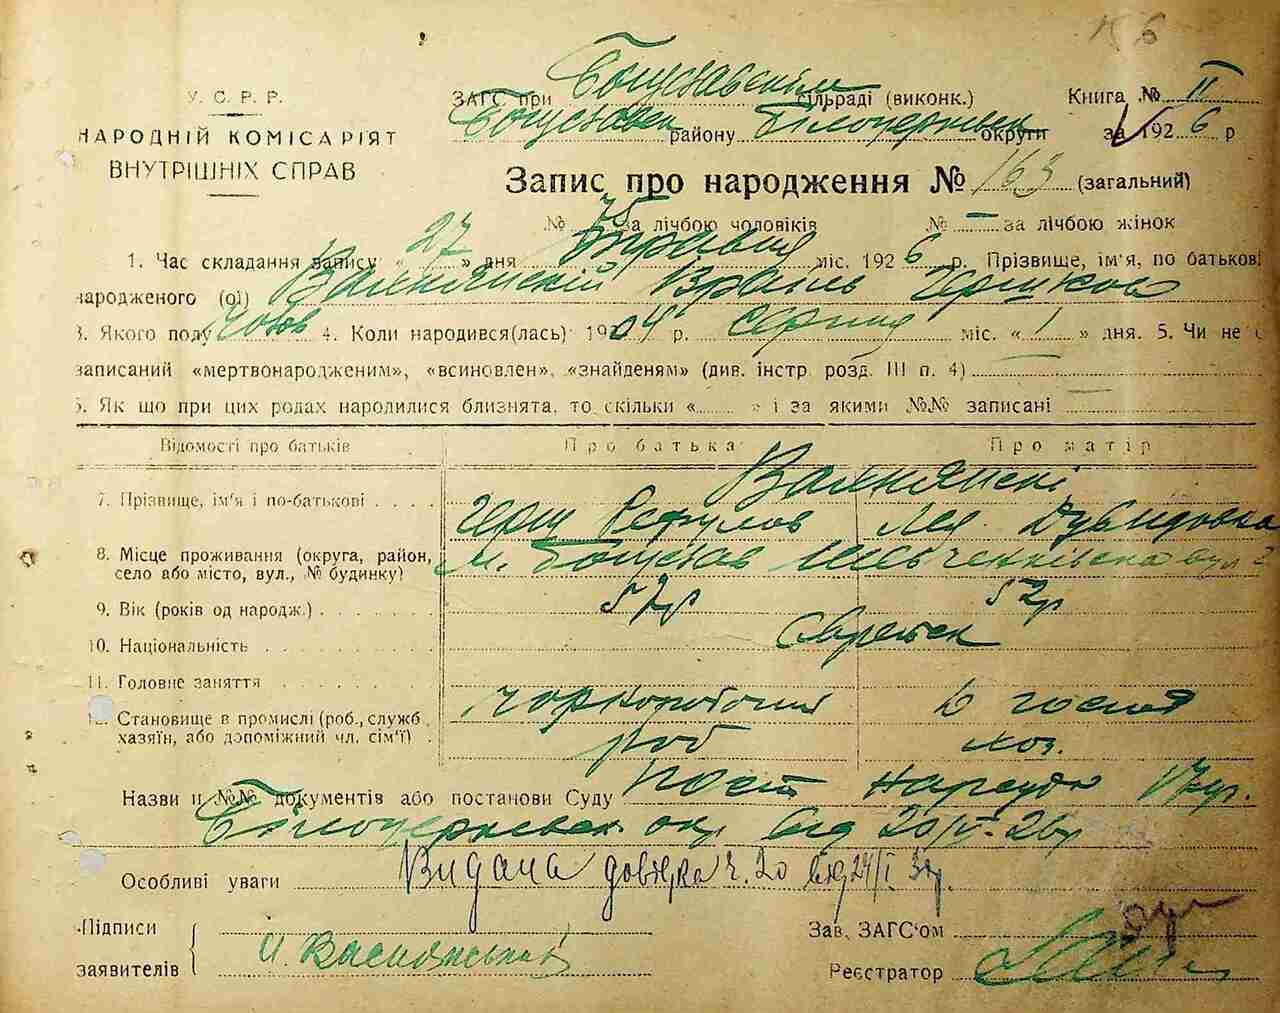 У. С. Р. Р.
НАРОДНІЙ КОМІСАРІЯТ
ВНУТРІШНІХ СПРАВ
ЗАГС при Богуславскім сільраді (виконк.) Книга № II
Богуславск району Білоцерківск округи за 1926 р
Запис про народження № 163 (загальний)
№ 75 за лічбою чоловіків № — за лічбою жінок
1. Час складання запису „ 27 " дня Травня міс. 1926 р. Прізвище, ім'я, по батькові
народженого (ої)
3. Якого полу Чолов 4. Коли народився(лась) 1904 р. серпня міс. « 1 » дня. 5. Чи не
записаний «мертвонародженим», «всиновлен», «знайденям» (див. інстр. розд. III п. 4)
6. Як що при цих родах народилися близнята, то скільки «...... » і за якими №№ записані
Відомості про батьків Про батька Про матір
7. Прізвище, ім'я і по-батькові . . . .
Герш
8. Місце проживання (округа, район,
село або місто, вул., № будинку) м. Богуслав Шевченківска вул
9. Вік (років од народж.) 57р 52р
10. Національність Єврейск
11. Головне заняття чорноробочий
12. Становище в промислі (роб., служб.,
хазяїн, або допоміжний чл. сім'ї) роб
Назви и №№ документів або постанови Суду пост Нарсуда
Білоцерківск. окр від 20/IV-26р
Особливі уваги Видана довідка ч. 20 від 24/I
Підписи
заявителів
Зав. ЗАГС'ом
Реєстратор